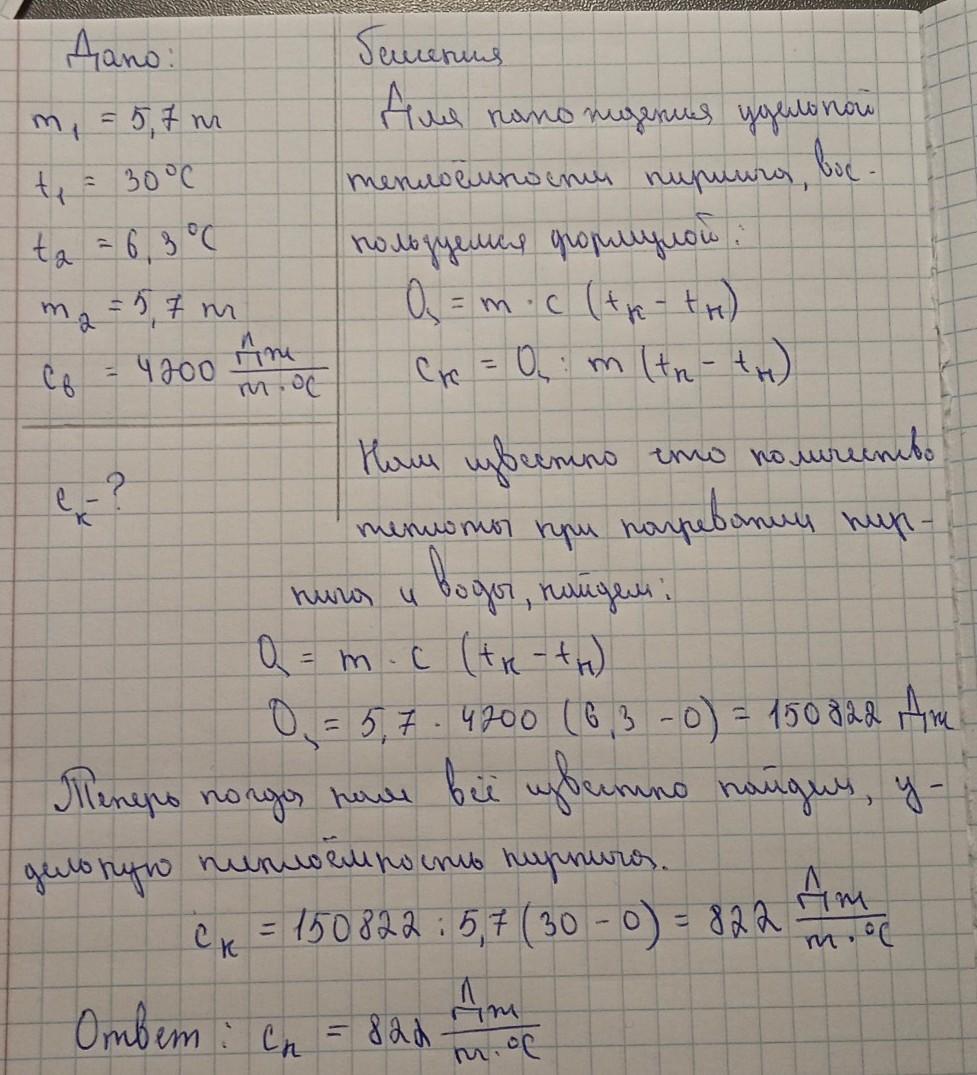 Дано:
m₁ = 5,7 т
t₁ = 30°C
t₂ = 6,3°C
m₂ = 5,7 т
cв = 4200 Дж/т·°C
cк - ?
Решения
Для нахождения удельной
теплоёмкости кирпича, вос-
пользуемся формулой:
Q = m · c (tк - tн)
cк = Q : m (tк - tн)
Нам известно что количество
теплоты при нагревании кир-
пича и воды, найдем:
Q = m · c (tк - tн)
Q = 5,7 · 4200 (6,3 - 0) = 150822 Дж
Теперь когда нам всё известно найдим, у-
дельную типлоёмкость кирпича.
cк = 150822 : 5,7 (30 - 0) = 822 Дж/т·°C
Ответ: cк = 822 Дж/т·°C